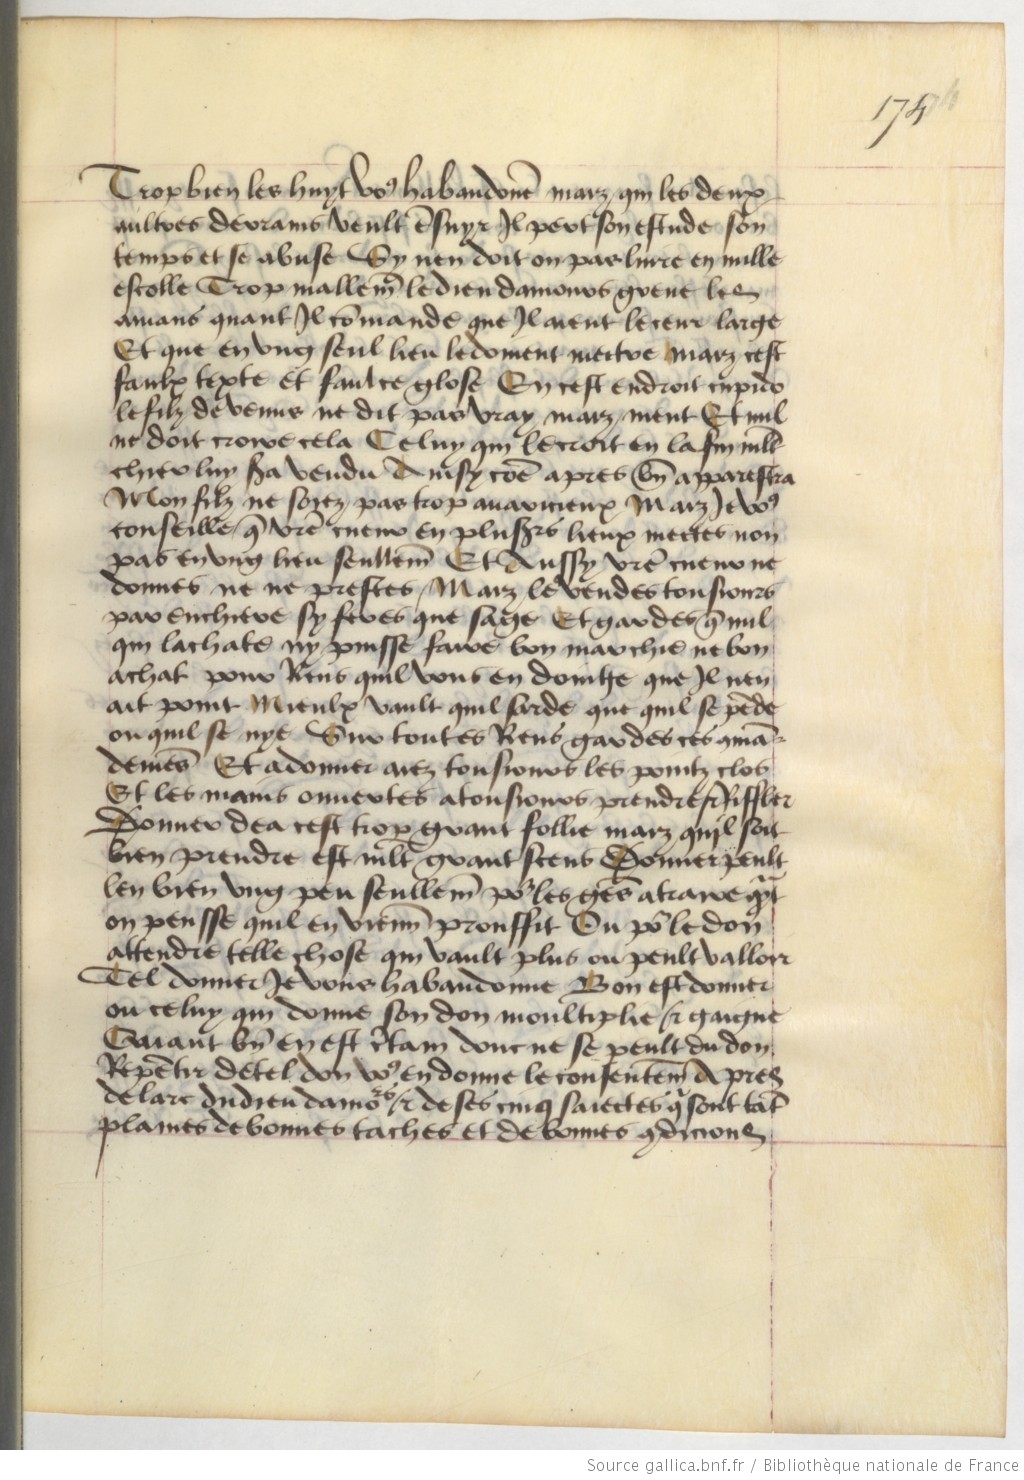 174
Trop bien les huyt vo9 habandonẽ marz qui les deux
aultres devrains veult ẽsuyr Il pert son estude son
temps et se abuse Sy nen doit on pas lirre en nulle
escolle Trop mallem̃ le dieu damours greue les
amans quant Il cõmande que Il aient le ceur large
Et que en vng seul lieu le doinent mectre marz cest
faulx texte et faulce glose En cest endroit cupido
le filz de venus ne dit pas vray marz ment Et nul
ne doit croire cela Celuy qui le croit en la fin ml̃t
chier luy sa vendu Ainsy cõe apres bñ apparestra
Mon filz ne soiez pas trop auaricieux Marz Je vo9
conseille q̃ vrẽ cueur en plus̃rs lieux mectes non
pas en vng lieu seullem̃ Et Aussy vrẽ cueur ne
donnes ne ne prestes Marz le vendes tousiours
par enchiere sy feres que sage Et gardes q̃ nul
qui lachate ny puisse faire bon marchie ne bon
achat pour Riens quil vous en doinge que Il nen
ait point Mieulx vault quil sarde que quil se pẽde
ou quil se nye Sur toutes Riens gardes ces qmã-
demẽs Et a donner aiez tousiours les pointz clos
Et les mains ouuertes a tousiours prendre et Riffler
Donner dea cest trop grant follie marz quil soit
bien prendre est ml̃t grant scens Donner peult
len bien vng peu seullem̃ po2 les gẽs atraire qñt
on pensse quil en viem̃ prouffit Ou po2 le don
attendre telle chose qui vault plus ou peult valloir
Tel donner Je vous habandonne Bon est donner
ou celuy qui donne son don moultiplie et gaigne
Garant bñ en est c̃tain donc ne se peult du don
Repẽtir de tel don vo9 en donne le consentem̃ Apres
de larc du dieu damo2s et de ses cinq saiectes q̃ sont tãt
plaines de bonnes taches et de bonnes 9dicions
Source gallica.bnf.fr / Bibliothèque nationale de France